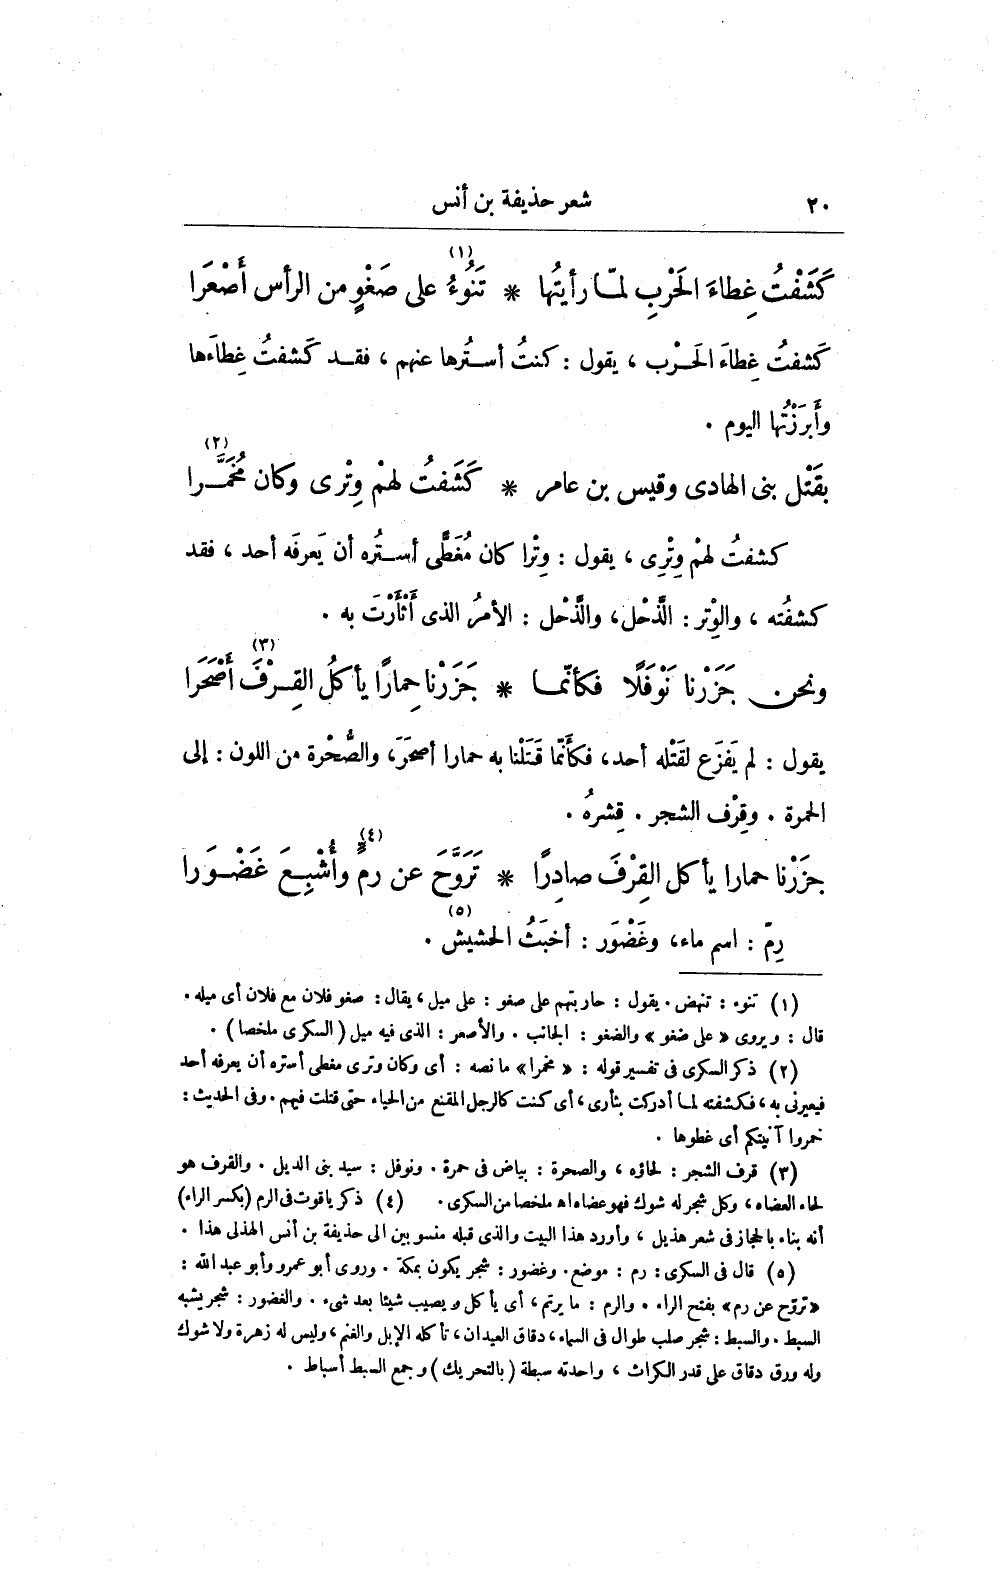 ٢٠
شعر حذيفة بن أنس
كَشَفْتُ غِطاءَ الحَرْبِ لمّا رأيتُها * تَنُوءُ على صَغْوٍ من الرأس أَصْعَرا (١)
كَشفتُ غِطاءَ الحَرْب ، يقول : كنتُ أستُرها عنهم ، فقد كَشفتُ غِطاءَها
وأَبرَزْتُها اليوم .
بقَتْل بنى الهادى وقيس بن عامر * كَشَفتُ لهمْ وِتْرى وكان مُخَمَّرا (٢)
كشفتُ لهمْ وِتْرِى ، يقول : وِتْرا كان مُغَطًّى أستُره أن يَعرفَه أحد ، فقد
كشفتُه ، والوِتر : الذَّحْل، والذَّحْل : الأمرُ الذى أَثْأَرْتَ به .
ونحن جَزَرْنا نَوْفَلًا فكأنّما * جَزَرْنا حِمارًا يأكلُ القِرْفَ أَصْحَرا (٣)
يقول : لم يَفزَع لقَتْله أحد، فكأنّما قَتَلْنا به حمارا أصحَرَ، والصُّحْرة من اللون : إلى
الحمرة . وقِرْف الشجر . قِشرهُ .
جزَرْنا حمارا يأكل القِرْفَ صادِرًا * تَرَوَّحَ عن رِمٍّ وأُشْبِعَ غَضْوَرا (٤)
رِمّ : اسم ماء، وغَضْوَر : أخبَثُ الحشيش . (٥)
(١) تنوء : تنهض . يقول : حاربتهم على صغو : على ميل ، يقال : صغو فلان مع فلان أى ميله .
قال : ويروى « على ضغو » والضغو : الجانب . والأصعر : الذى فيه ميل (السكرى ملخصا) .
(٢) ذكر السكرى فى تفسير قوله : « مخمرا » ما نصه : أى وكان وترى مغطى أستره أن يعرفه أحد
فيعيرنى به ، فكشفته لما أدركت بثأرى ، أى كنت كالرجل المقنع من الحياء حتى قتلت فيهم . وفى الحديث :
خمروا آنيتكم أى غطوها .
(٣) قرف الشجر : لحاؤه ، والصحرة : بياض فى حمرة . ونوفل : سيد بنى الديل . والقرف هو
لحاء العضاه ، وكل شجر له شوك فهو عضاه اه ملخصا من السكرى . (٤) ذكر ياقوت فى الرم (بكسر الراء)
أنه بناء بالحجاز فى شعر هذيل ، وأورد هذا البيت والذى قبله منسوبين الى حذيفة بن أنس الهذلى هذا .
(٥) قال فى السكرى : رم : موضع . وغضور : شجر يكون بمكة . وروى أبو عمرو وأبو عبد الله :
« تروّح عن رم » بفتح الراء . والرم : ما يرتم ، أى يأكل ويصيب شيئا بعد شىء . والغضور : شجر يشبه
السبط . والسبط : شجر صلب طوال فى السماء ، دقاق العيدان ، تأكله الإبل والغنم ، وليس له زهرة ولا شوك
وله ورق دقاق على قدر الكراث ، واحدته سبطة (بالتحريك) وجمع السبط أسباط .